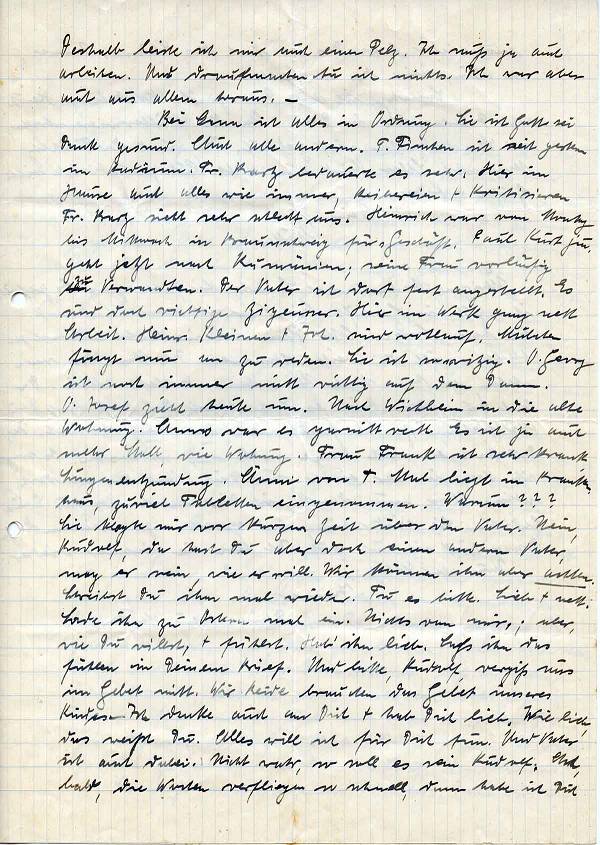 Deshalb leiste ich mir auch einen Pelz. Ich muß ja auch
arbeiten. Und draufmachen tu ich nichts. Ich war aber
auch aus allem heraus. –
Bei Oma ist alles in Ordnung. Sie ist Gott sei
Dank gesund. Auch alle andern. T. ist seit gestern
im. Fr. bedauerte es sehr. Hier im
Hause auch alles wie immer, Reibereien + Kritisieren
Fr. sieht sehr schlecht aus. Heinrich war von Montag
bis Mittwoch in Braunschweig fürs Geschäft. Paul Kurt jun.
geht jetzt nach Rumänien, seine Frau vorläufig
zu Verwandten. Der Vater ist dort fest angestellt. Es
sind doch richtige Zigeuner. Hier im Werk ganz nett
Arbeit. Heinr. Kleinen + Joh. sind wohlauf.
fängt nun an zu reden. Sie ist so witzig. O. Georg
ist noch immer nicht richtig auf dem Damm.
O. Josef zieht heute um. Nach in die alte
Wohnung. war es garnicht recht. Es ist ja auch
mehr Stall, wie Wohnung. Frau Frank ist sehr krank
Lungenentzündung. Änni von T. liegt im Kranken-
haus, zuviel Tabletten eingenommen. Warum???
Sie klagte mir vor kurzer Zeit über den Vater. Nein,
Rudolf, da hast Du aber doch einen andern Vater,
mag er sein, wie er will. Wir können ihn aber achten.
Schreibst Du ihm mal wieder. Tu es bitte. Lieb + nett.
Lade ihn zu Ostern mal ein. Nichts von mir, aber,
wie Du willst, + fühlst. Hab' ihn lieb. Laß ihn das
fühlen in Deinem Brief. Und bitte, Rudolf, vergiß uns
im Gebet nicht. Wir beide brauchen das Gebet unseres
Kindes. Ich denke auch an Dich + hab Dich lieb. Wie lieb,
das weißt Du. Alles will ich für Dich tun. Und Vater
ist auch dabei. Nicht wahr, so soll es sein Rudolf.
bald, die Wochen verfliegen so schnell, dann habe ich Dich